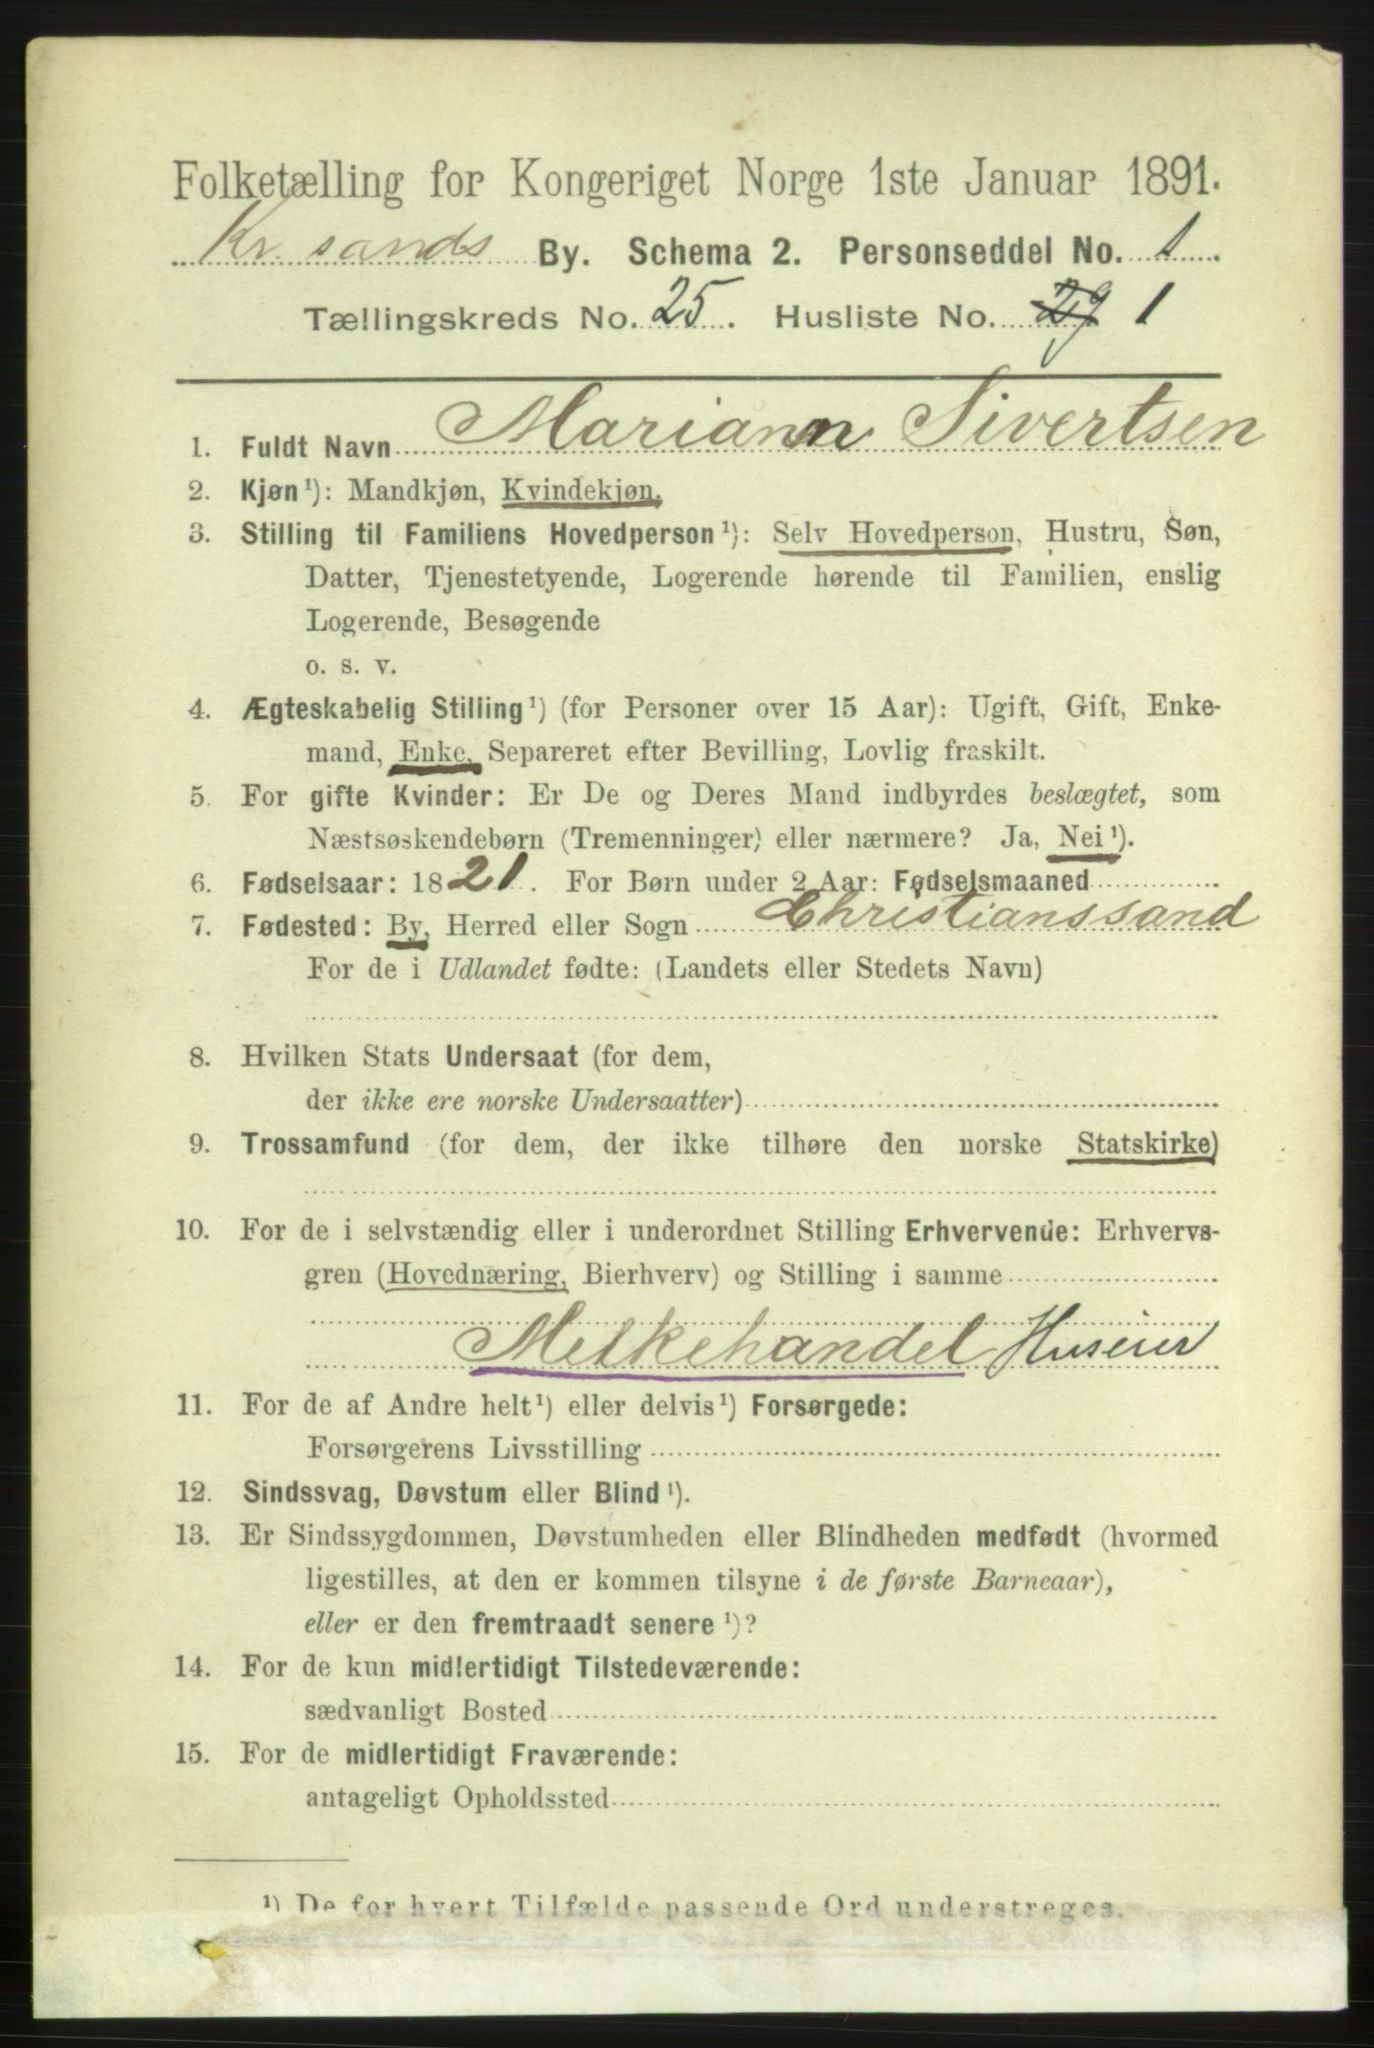 Folketælling for Kongeriget Norge 1ste Januar 1891.
Kr. sands By. Schema 2. Personseddel No. 1
Tællingskreds No. 25. Husliste No. 29 1
1. Fuldt Navn Mariann Sivertsen
2. Kjøn ¹): Mandkjøn, Kvindekjøn.
3. Stilling til Familiens Hovedperson ¹): Selv Hovedperson, Hustru, Søn,
Datter, Tjenestetyende, Logerende hørende til Familien, enslig
Logerende, Besøgende
o. s. v.
4. Ægteskabelig Stilling ¹) (for Personer over 15 Aar): Ugift, Gift, Enke-
mand, Enke, Separeret efter Bevilling, Lovlig fraskilt.
5. For gifte Kvinder: Er De og Deres Mand indbyrdes beslægtet, som
Næstsøskendebørn (Tremenninger) eller nærmere? Ja, Nei ¹).
6. Fødselsaar: 1821. For Børn under 2 Aar: Fødselsmaaned
7. Fødested: By, Herred eller Sogn Christianssand
For de i Udlandet fødte: (Landets eller Stedets Navn)
8. Hvilken Stats Undersaat (for dem,
der ikke ere norske Undersaatter)
9. Trossamfund (for dem, der ikke tilhøre den norske Statskirke)
10. For de i selvstændig eller i underordnet Stilling Erhvervende: Erhvervs-
gren (Hovednæring, Bierhverv) og Stilling i samme
Melkehandel Huseier
11. For de af Andre helt ¹) eller delvis ¹) Forsørgede:
Forsørgerens Livsstilling
12. Sindssvag, Døvstum eller Blind ¹).
13. Er Sindssygdommen, Døvstumheden eller Blindheden medfødt (hvormed
ligestilles, at den er kommen tilsyne i de første Barneaar),
eller er den fremtraadt senere ¹)?
14. For de kun midlertidigt Tilstedeværende:
sædvanligt Bosted
15. For de midlertidigt Fraværende:
antageligt Opholdssted
¹) De for hvert Tilfælde passende Ord understreges.